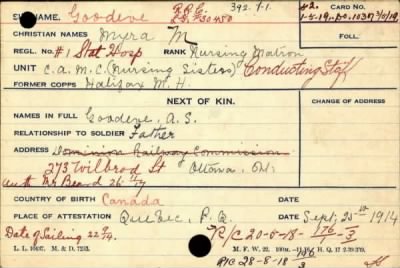 SURNAME. Goodeve R.R.C. 392.1.1. 42. CARD NO.
1-5-19. D.O. 1037
CHRISTIAN NAMES Myra M FOLL.
REGL. No. #1 Stat Hosp RANK Nursing Matron
UNIT C.A.M.C. (Nursing Sisters) Conducting Staff
FORMER CORPS Halifax M.H.
NEXT OF KIN. CHANGE OF ADDRESS
NAMES IN FULL Goodeve, A.S.
RELATIONSHIP TO SOLDIER Father
ADDRESS Dominion Railway Commission
273 Wilbrod St Ottawa, Ont.
COUNTRY OF BIRTH Canada
PLACE OF ATTESTATION Quebec, P.Q. DATE Sept. 1914
Date of Sailing R/C 20-5-18-
M. F. W. 22.
R/C 28-8-18